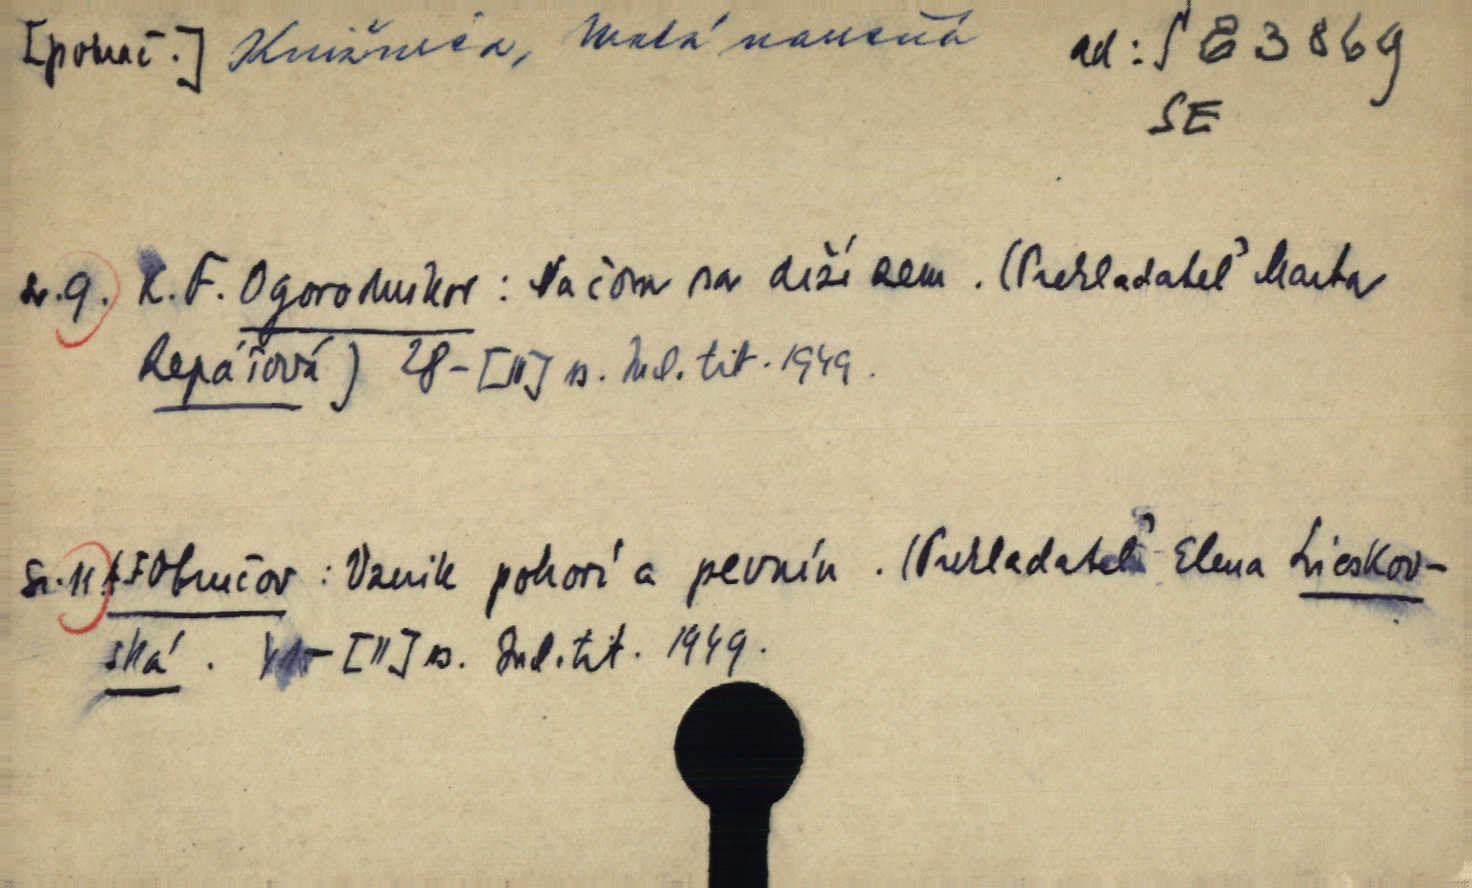 [pokrač.] Knižnica, Malá náučná ad: SE 3869
SE
Sv. 9. K. F. Ogorodnikov: Na čom sa drží zem. (Prekladateľ Marta
Repášová) 28-[II] s. Ind. tit. 1949.
Sv. 11. Obručov: Vznik pohorí a pevnín. (Prekladateľ Elena Lieskov-
ská. -[II] s. Ind. tit. 1949.